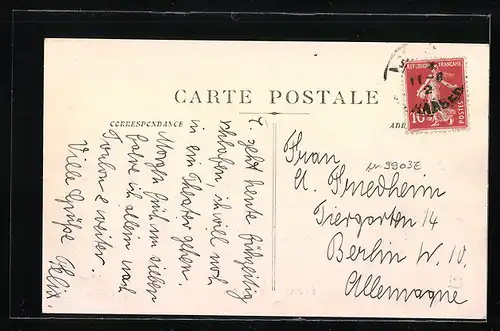 CARTE POSTALE
CORRESPONDANCE
ADR
REPUBLIQUE FRANÇAISE
10
POSTES
T. geht heute frühzeitig
schlafen, ich will noch
in ein Theater gehen.
Morgen früh um sieben
fahre ich allein nach
Toulon & weiter.
Viele Grüße Felix.
Frau
A. Friedheim
Tiergarten 14
Berlin W. 10.
Allemagne